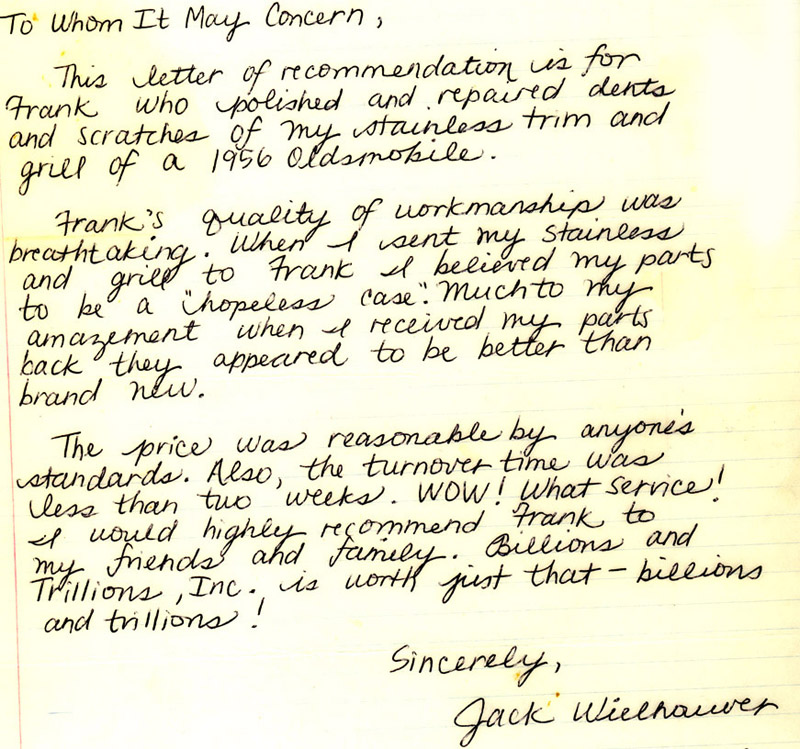 To Whom It May Concern,
This letter of recommendation is for
Frank who polished and repaired dents
and scratches of my stainless trim and
grill of a 1956 Oldsmobile.
Frank's quality of workmanship was
breathtaking. When I sent my stainless
and grill to Frank I believed my parts
to be a "hopeless case". Much to my
amazement when I received my parts
back they appeared to be better than
brand new.
The price was reasonable by anyone's
standards. Also, the turnover time was
less than two weeks. WOW! What service!
I would highly recommend Frank to
my friends and family. Billions and
Trillions, Inc. is worth just that - billions
and trillions!
Sincerely,
Jack Wielhouwer